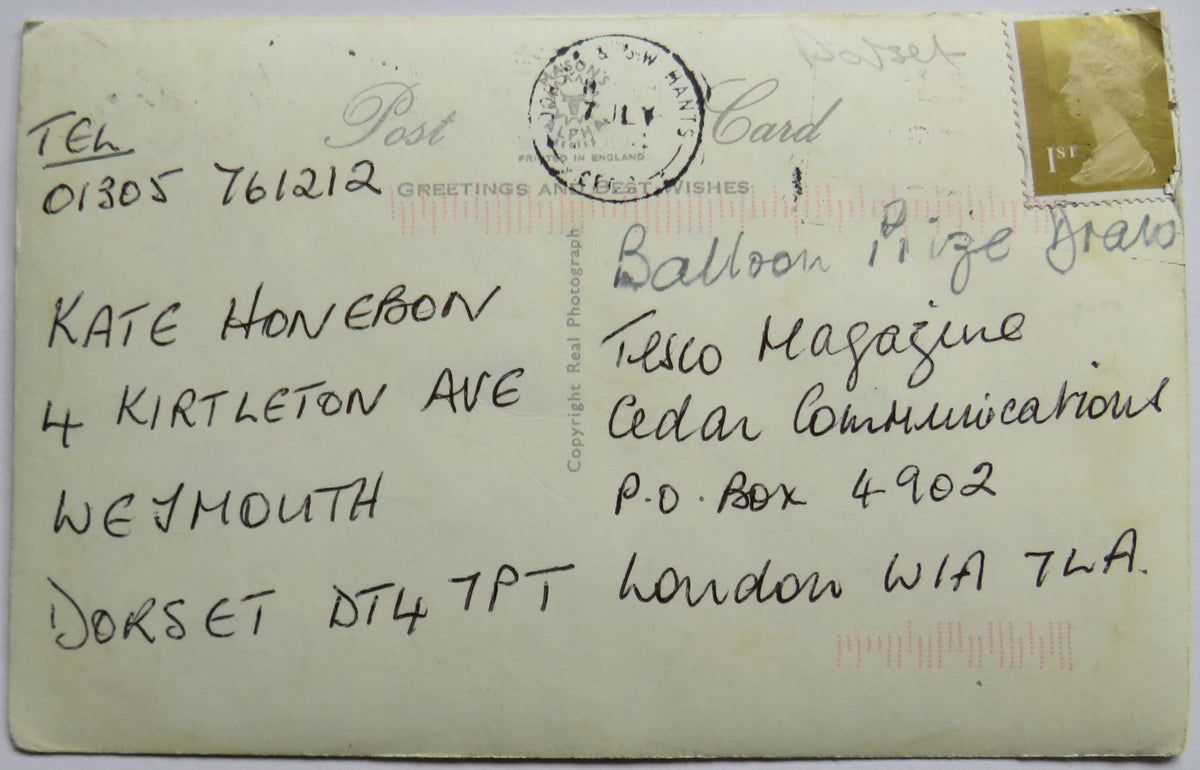 Dorset
Post Card
PRINTED IN ENGLAND
GREETINGS AND BEST WISHES
Copyright Real Photograph
& S.W HANTS
1ST
TEL
01305 761212
KATE HONEBON
4 KIRTLETON AVE
WEYMOUTH
DORSET DT4 7PT
Balloon Prize Draw
Tesco Magazine
Cedar Communications
P.O. BOX 4902
London W1A 7LA.